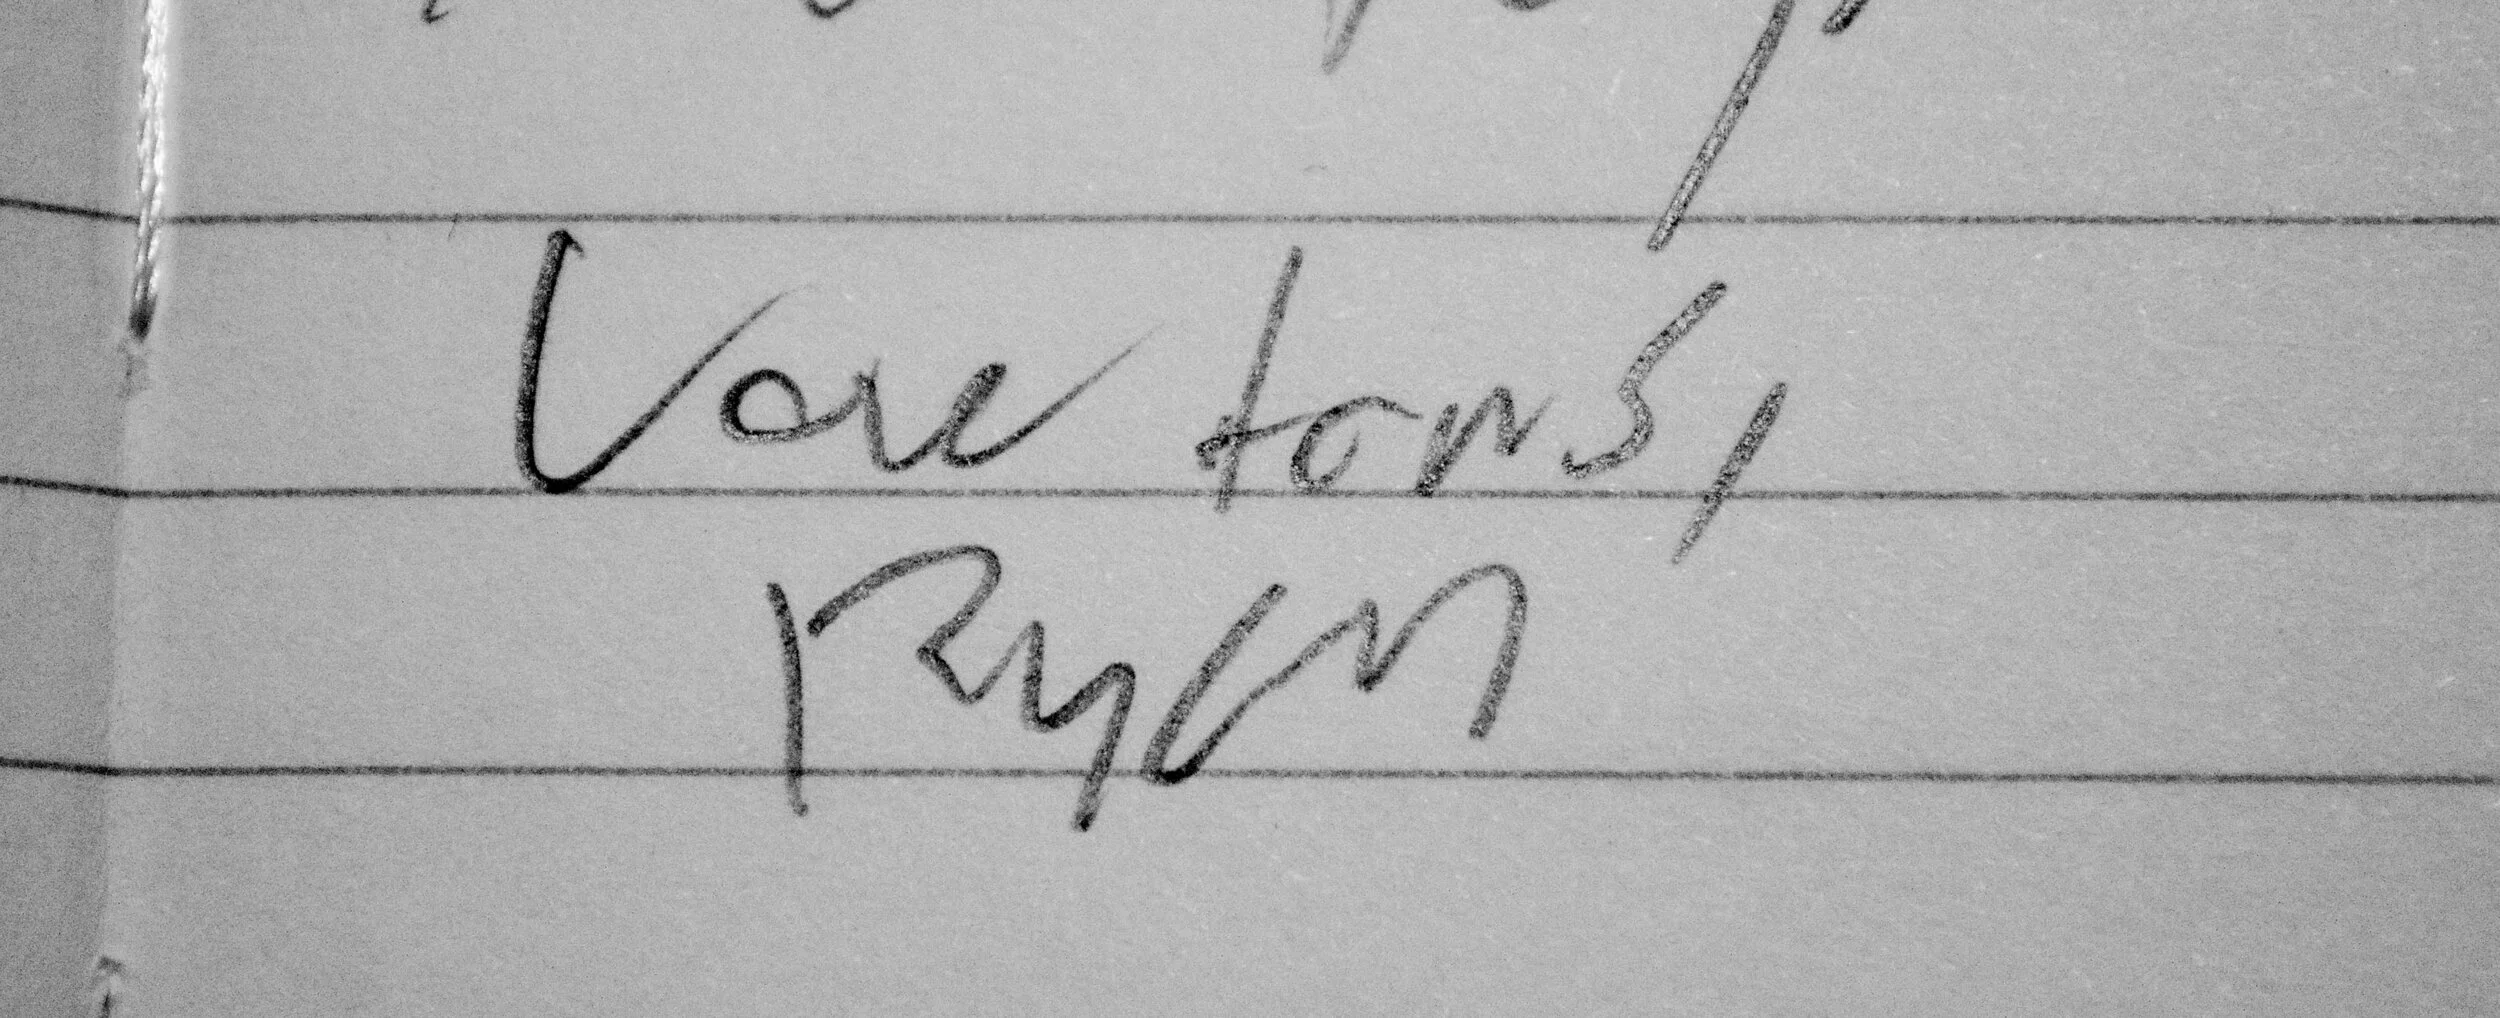 Love tons,
Ryan